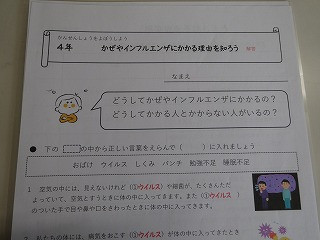 かんせんしょうをよぼうしよう
4年 かぜやインフルエンザにかかる理由を知ろう
なまえ
どうしてかぜやインフルエンザにかかるの?
どうしてかかる人とかからない人がいるの?
● 下の の中から正しい言葉をえらんで( )に入れましょう
おばけ ウイルス しくみ パンチ 勉強不足 睡眠不足
1 空気の中には、見えないけれど(①ウイルス)や細菌が、たくさんただ
よっていて、空気とすうときに体の中に入ってきます。また(①ウイルス)
のついた手で目や鼻や口をさわったときに体の中に入ってきます。
私たちの体には、病気をおこす(①ウイルス)が体の中に入ってきたとき